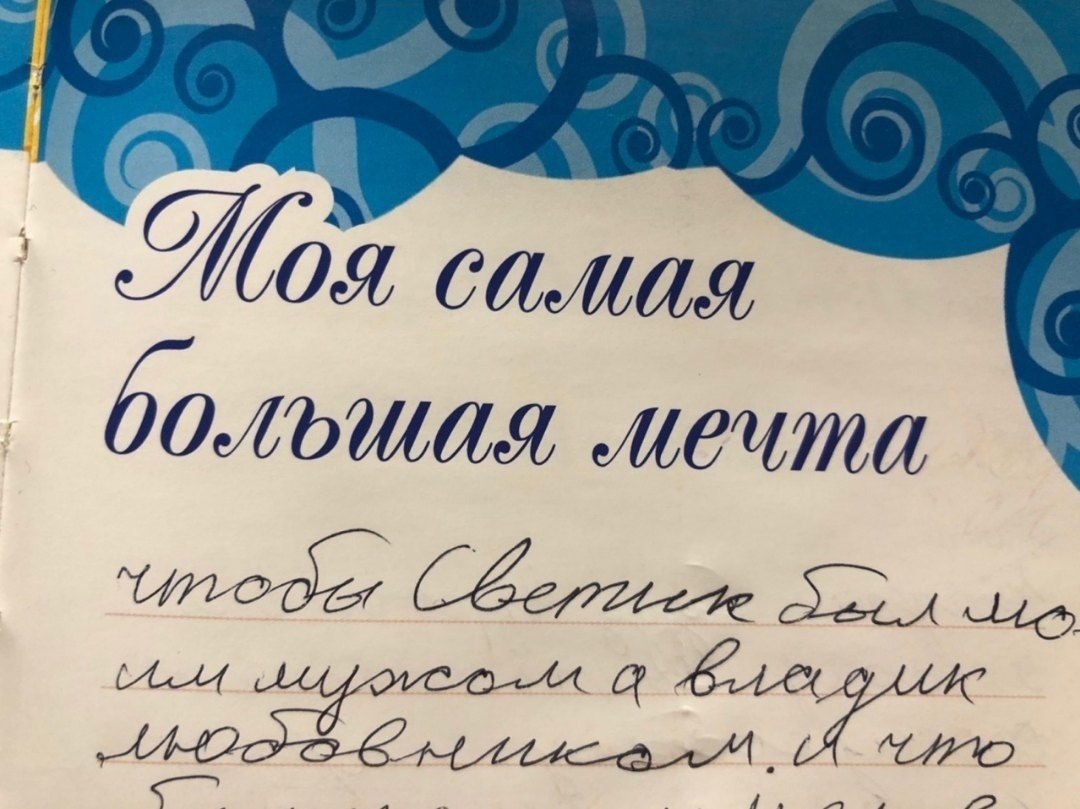 Моя самая
большая мечта
чтобы Светик был мо-
им мужом а владик
любовником. и что